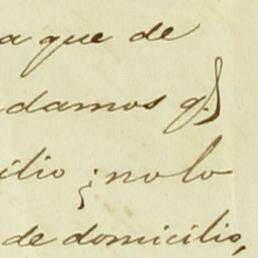 a que de
damos q.e
ilio ; no lo
de domicilio,